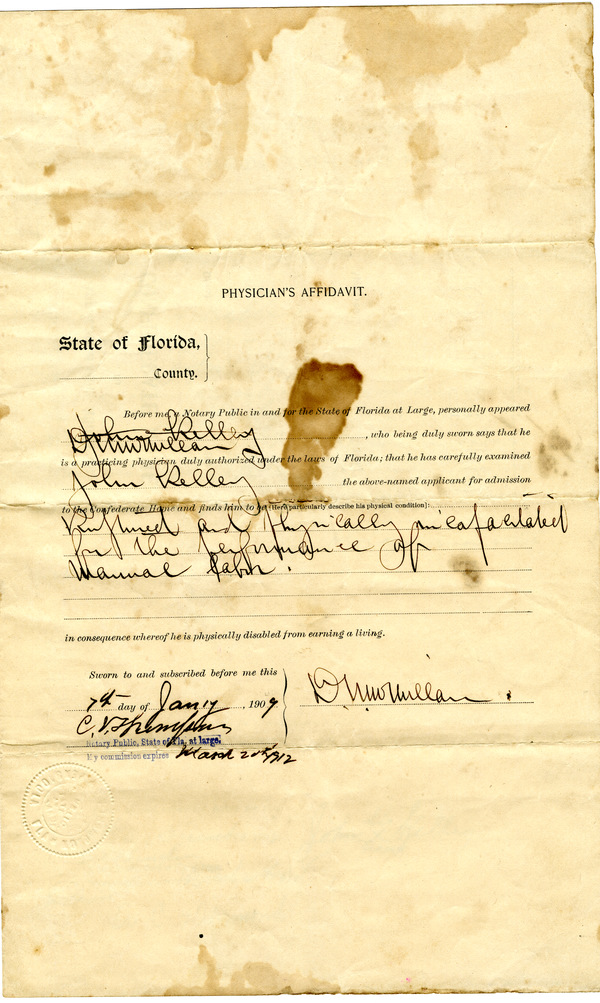 PHYSICIAN'S AFFIDAVIT.
State of Florida,
County.
Before me a Notary Public in and for the State of Florida at Large, personally appeared
John Kelley
D McMillan , who being duly sworn says that he
is a practicing physician duly authorized under the laws of Florida; that he has carefully examined
John Kelley the above-named applicant for admission
to the Confederate Home and finds him to be (Here particularly describe his physical condition):
Ruptured and physically incapacitated
for the performance of
manual labor.
in consequence whereof he is physically disabled from earning a living.
Sworn to and subscribed before me this
7th day of Jany , 1909
D McMillan
C. V. Thompson
Notary Public, State of Fla, at large.
My commission expires March 20th 1912